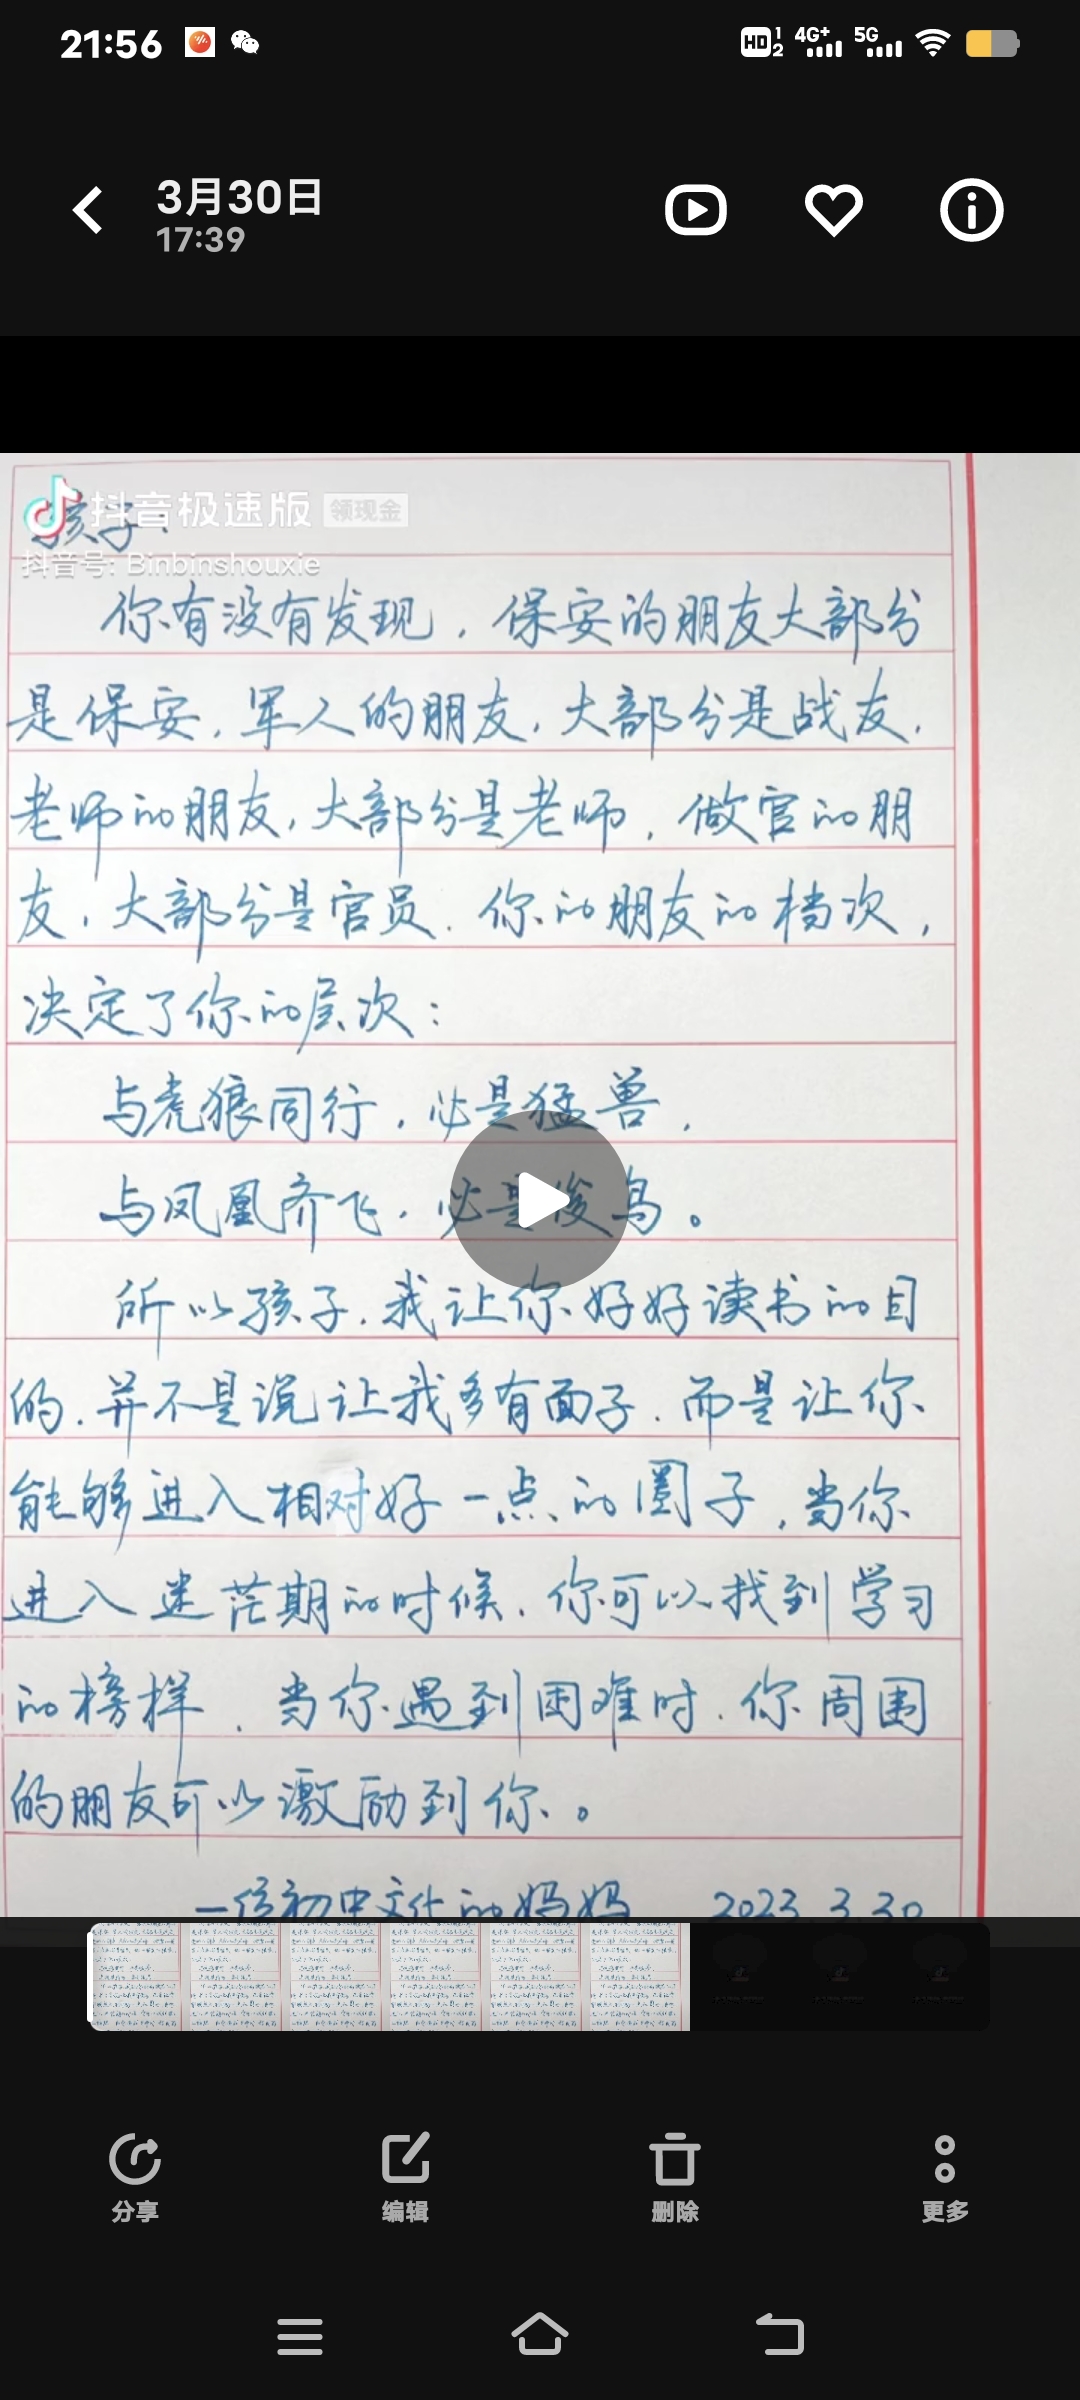 21:56 HD 1 2 4G+ 5G
3月30日
17:39
抖音极速版 领现金
孩子:
抖音号: Binbinshouxie
你有没有发现，保安的朋友大部分
是保安，军人的朋友，大部分是战友，
老师的朋友，大部分是老师，做官的朋
友，大部分是官员．你的朋友的档次，
决定了你的层次：
与虎狼同行，必是猛兽，
与凤凰齐飞，必是俊鸟。
所以孩子，我让你好好读书的目
的，并不是说让我多有面子，而是让你
能够进入相对好一点的圈子，当你
进入迷茫期的时候，你可以找到学习
的榜样，当你遇到困难时，你周围
的朋友可以激励到你。
一位初中文化的妈妈 2023.3.30
分享 编辑 删除 更多